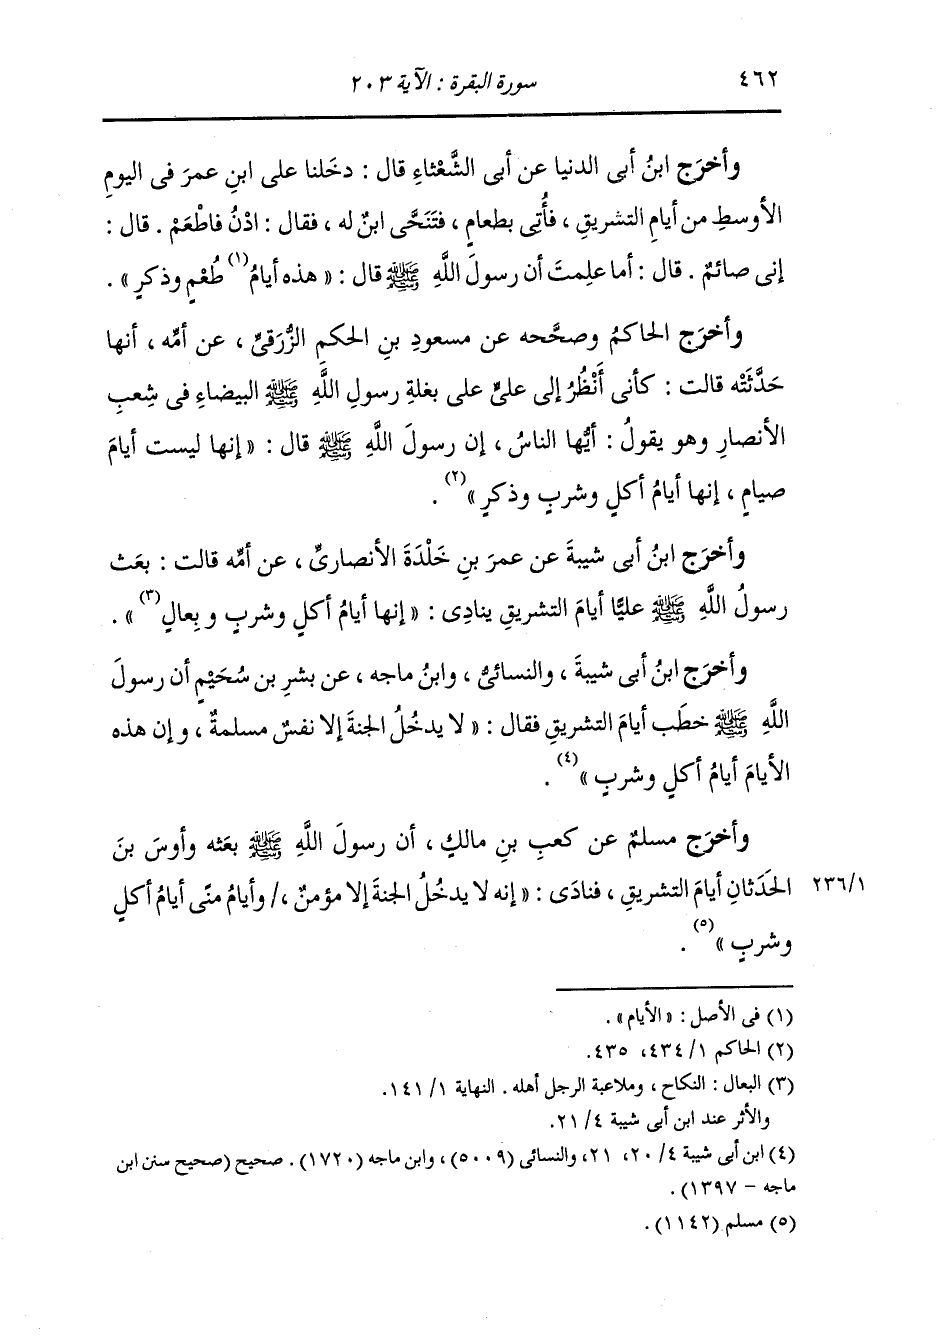 ٤٦٢
سورة البقرة : الآية ٢٠٣
وأخرَج ابنُ أبى الدنيا عن أبى الشَّعْثاءِ قال : دخَلنا على ابنِ عمرَ فى اليومِ
الأوسطِ من أيامِ التشريقِ ، فأُتِى بطعامٍ ، فتَنَحَّى ابنٌ له ، فقال : ادْنُ فاطْعَمْ . قال :
إنى صائمٌ . قال : أما علِمتَ أن رسولَ اللَّهِ ﷺ قال : « هذه أيامُ(١) طُعْمٍ وذكرٍ » .
وأخرَج الحاكمُ وصحَّحه عن مسعودِ بنِ الحكمِ الزُّرَقىِّ ، عن أمِّه ، أنها
حَدَّثَتْه قالت : كأنى أَنْظُرُ إلى علىٍّ على بغلةِ رسولِ اللَّهِ ﷺ البيضاءِ فى شِعبِ
الأنصارِ وهو يقولُ : أيُّها الناسُ ، إن رسولَ اللَّهِ ﷺ قال : « إنها ليست أيامَ
صيامٍ ، إنها أيامُ أكلٍ وشربٍ وذكرٍ »(٢) .
وأخرَج ابنُ أبى شيبةَ عن عمرَ بنِ خَلْدَةَ الأنصارىِّ ، عن أمِّه قالت : بعَث
رسولُ اللَّهِ ﷺ عليًّا أيامَ التشريقِ ينادِى : « إنها أيامُ أكلٍ وشربٍ وبِعالٍ(٣) » .
وأخرَج ابنُ أبى شيبةَ ، والنسائىُّ ، وابنُ ماجه ، عن بشرِ بنِ سُحَيْمٍ أن رسولَ
اللَّهِ ﷺ خطَب أيامَ التشريقِ فقال : « لا يدخُلُ الجنةَ إلا نفسٌ مسلمةٌ ، وإن هذه
الأيامَ أيامُ أكلٍ وشربٍ »(٤) .
وأخرَج مسلمٌ عن كعبِ بنِ مالكٍ ، أن رسولَ اللَّهِ ﷺ بعَثه وأوسَ بنَ
الحَدَثانِ أيامَ التشريقِ ، فنادَى : « إنه لا يدخُلُ الجنةَ إلا مؤمنٌ ،/ وأيامُ منًى أيامُ أكلٍ
٢٣٦/١
وشربٍ »(٥) .
(١) فى الأصل : « الأيام » .
(٢) الحاكم ١/ ٤٣٤، ٤٣٥.
(٣) البعال : النكاح ، وملاعبة الرجل أهله . النهاية ١/ ١٤١.
والأثر عند ابن أبى شيبة ٤/ ٢١.
(٤) ابن أبى شيبة ٤/ ٢٠، ٢١، والنسائى (٥٠٠٩) ، وابن ماجه (١٧٢٠) . صحيح (صحيح سنن ابن
ماجه – ١٣٩٧) .
(٥) مسلم (١١٤٢) .